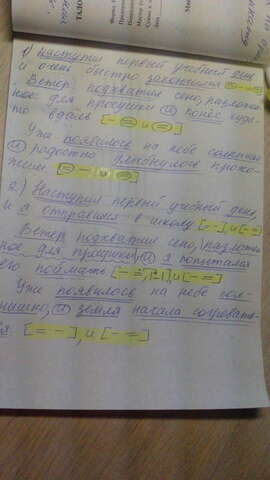 ТАЛО
1) Наступил первый учебный день
и очень быстро закончился [= - и =]
Ветер подхватил сено, разложен-
ное для просушки и понёс куда-
то вдаль [- = и =]
Уже появилось на небе солнышко
и радостно улыбнулось прохо-
жим [= - и =]
2) Наступил первый учебный день,
и я отправился в школу [= -], и [- =]
Ветер подхватил сено, разложен-
ное для просушки, и я попытался
его поймать [- =, |~|], и [- =]
Уже появилось на небе сол-
нышко, и земля начала согревать-
ся [= -], и [- =]